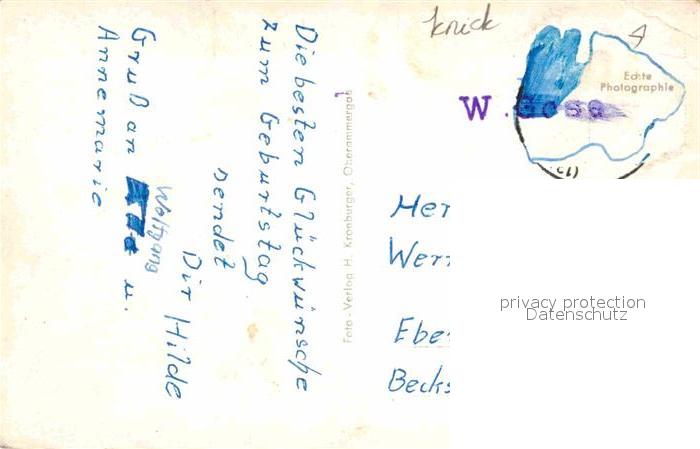 Knick
Echte
Photographie
W
Die besten Glückwünsche
zum Geburtstag
sendet
Dir Hilde
Wolfgang
Gruß an u.
Annemarie
Foto-Verlag H. Kronburger, Oberammergau
Her
Wer
Ebe
Becks
privacy protection
Datenschutz